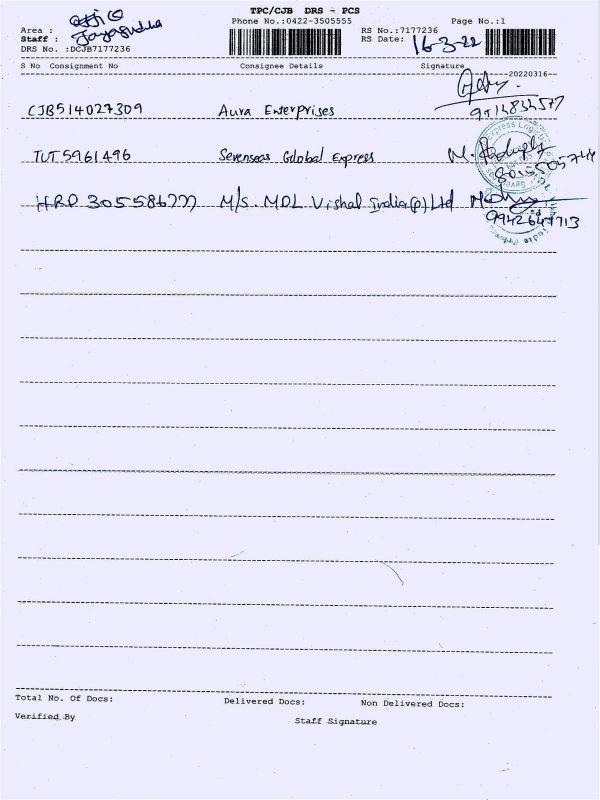 TPC/CJB DRS - PCS
Area :
Phone No.:0422-3505555
Page No.:1
Staff :
RS No.:7177236
DRS No. :DCJB7177236
RS Date: 16-3-22
S No Consignment No Consignee Details Signature
20220316
CJB514027309 Aura Enterprises
TUT5961496 Sevenseas Global Express
8055505744
HRD 305586777 M/s. MDL Vishal India(p)Ltd
9942647713
Total No. Of Docs: Delivered Docs: Non Delivered Docs:
Verified By Staff Signature